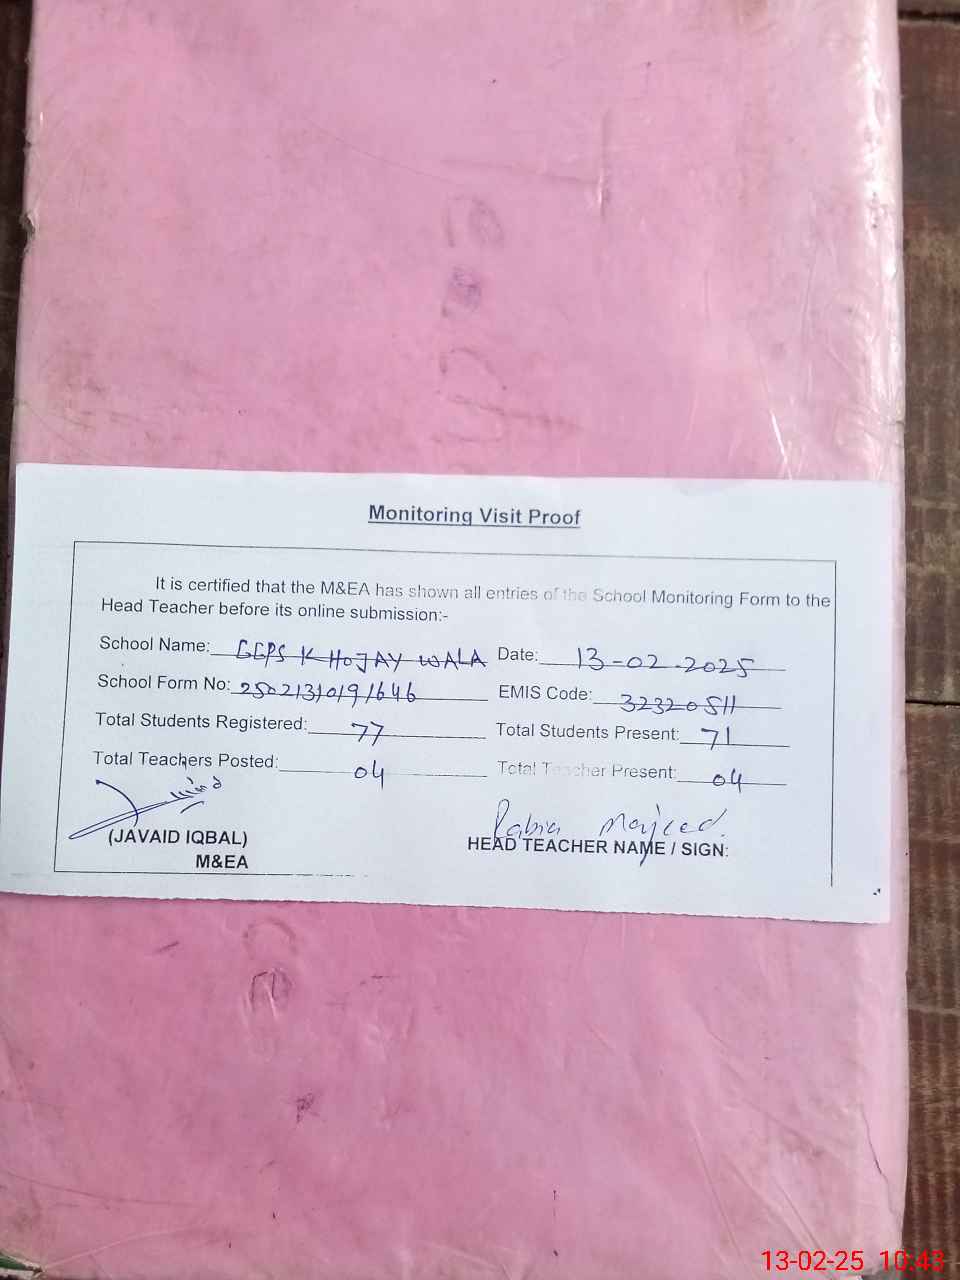 Monitoring Visit Proof
It is certified that the M&EA has shown all entries of the School Monitoring Form to the
Head Teacher before its online submission:-
School Name: GGPS KHOJAY WALA Date: 13-02-2025
School Form No: 25021310191646 EMIS Code: 32320511
Total Students Registered: 77 Total Students Present: 71
Total Teachers Posted: 04 Total Teacher Present: 04
Rabia Majeed.
(JAVAID IQBAL) HEAD TEACHER NAME / SIGN:
M&EA
13-02-25 10:43